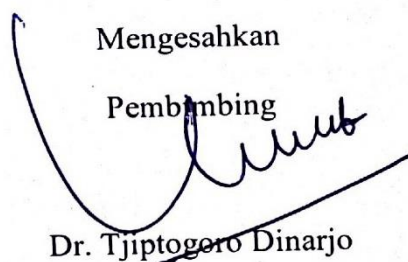 Mengesahkan
Pembimbing
Dr. Tjiptogoro Dinarjo